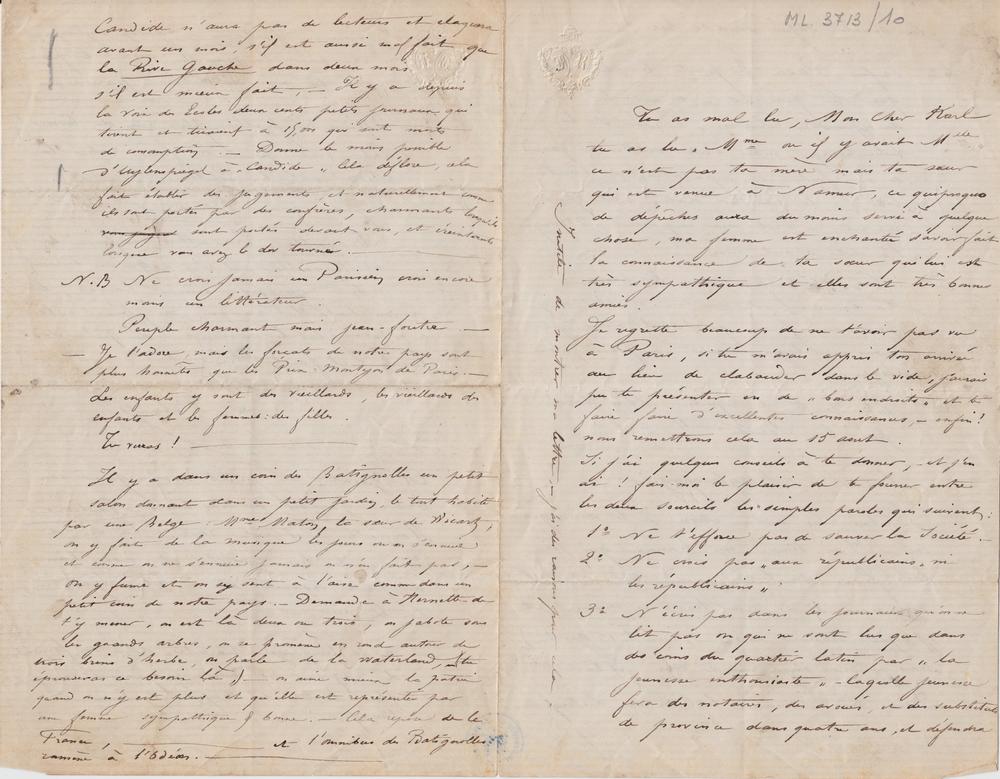 ML. 3713/10
Tu as mal lu, Mon cher Karl
tu as lu „ Mme où il y avait Melle
ce n'est pas ta mère mais ta sœur
qui est venue à Namur, ce quiproquo
de dépêches aura du moins servi à quelque
chose, ma femme est enchantée d'avoir fait
la connaissance de ta sœur qui lui est
très sympathique et elles sont très bonnes
amies.
Je regrette beaucoup de ne t'avoir pas vu
à Paris, si tu m'avais appris ton arrivée
au lieu de clabauder dans le vide, j'aurais
pu te présenter en de „ bons endroits „ et te
faire faire d'excellentes connaissances, – enfin !
nous remettrons cela au 15 aout.
Si j'ai quelques conseils à te donner, – et j'en
ai ! fais-moi le plaisir de te fourrer entre
les deux sourcils les simples paroles qui suivent :
1° Ne t'efforce pas de sauver la Société.
2° Ne crois pas „ aux républicains, ni
les républicains „
3° N'écris pas dans les journaux qu'on ne
lit pas ou qui ne sont lus que dans
des coins du quartier latin par „ la
jeunesse enthousiaste „ – laquelle jeunesse
fera des notaires, des avoués, et des substituts
de province dans quatre ans, et défendra
Inutile de montrer ma lettre, – j'ai des raisons pour cela.
Candide n'aura pas de lecteurs et
avant un mois, s'il est aussi mal fait que
la Rive Gauche dans deux mois
s'il est mieux fait, – Il y a depuis
la voix des Ecoles deux cents petits journaux qui
tirent et tiraient à 1500 qui sont morts
de consomption. – Donne le moins possible
d'Uylenspiegel à „ Candide „ Cela déflore, cela
fait établir des jugements, et naturellement comme
ils sont portés par des confrères, charmants lorsqu'ils
sont portés devant vous, et éreintants
lorsque vous avez le dos tourné.
N.B Ne crois jamais un Parisien, crois encore
moins un littérateur.
Peuple charmant mais jean-foutre. –
– Je l'adore, mais les forçats de notre pays sont
plus honnêtes que les Prix-Montyon de Paris. –
Les enfants y sont des vieillards, les vieillards des
enfants et les femmes : des filles.
Tu verras ! –
Il y a dans un coin des Batignolles un petit
salon donnant dans un petit jardin, le tout habité
par une Belge : Mme Maton, la sœur de Ricart,
on y fait de la musique les jours où on s'ennuie
et comme on ne s'ennuie jamais on n'en fait pas, –
on y fume et on s'y sent à l'aise comme dans un
petit coin de notre pays. – Demande à Hermette de
t'y mener, on est là deux ou trois, on jabote sous
les grands arbres, on se promène en rond autour de
trois brins d'herbe, on parle de la Waterland, (tu
éprouveras ce besoin là) – on aime mieux la patrie
quand on n'y est plus et qu'elle est représentée par
une femme sympathique & bonne. – Cela repose de la
France, – et l'omnibus des Batignolles
ramène à l'Odéon. –